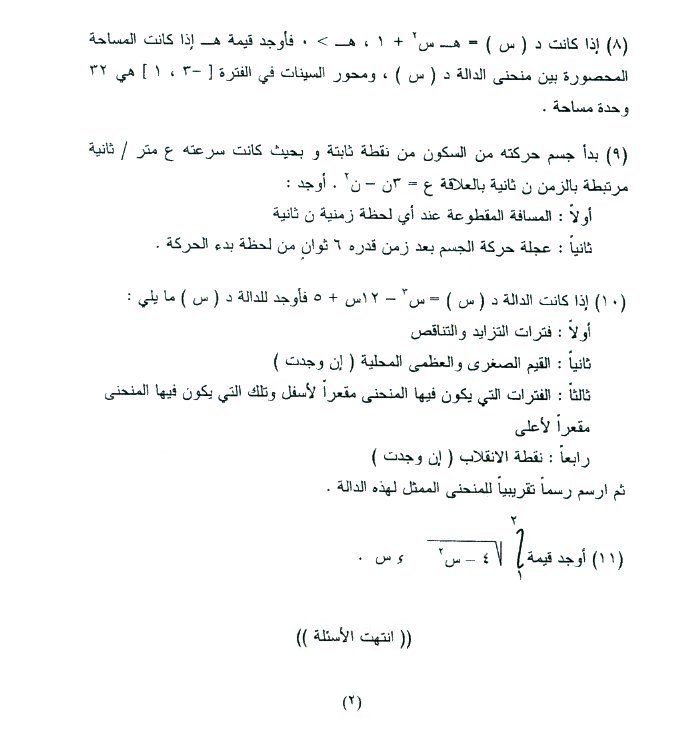 (٨) إذا كانت د ( س ) = هـ س٢ + ١ ، هـ > ٠ فأوجد قيمة هـ إذا كانت المساحة
المحصورة بين منحنى الدالة د ( س ) ، ومحور السينات في الفترة [ -٣ ، ١ ] هي ٣٢
وحدة مساحة .
(٩) بدأ جسم حركته من السكون من نقطة ثابتة و بحيث كانت سرعته ع متر / ثانية
مرتبطة بالزمن ن ثانية بالعلاقة ع = ٣ن – ن٢ . أوجد :
أولاً : المسافة المقطوعة عند أي لحظة زمنية ن ثانية
ثانياً : عجلة حركة الجسم بعد زمن قدره ٦ ثوانٍ من لحظة بدء الحركة .
(١٠) إذا كانت الدالة د ( س ) = س٣ – ١٢س + ٥ فأوجد للدالة د ( س ) ما يلي :
أولاً : فترات التزايد والتناقص
ثانياً : القيم الصغرى والعظمى المحلية ( إن وجدت )
ثالثاً : الفترات التي يكون فيها المنحنى مقعراً لأسفل وتلك التي يكون فيها المنحنى
مقعراً لأعلى
رابعاً : نقطة الانقلاب ( إن وجدت )
ثم ارسم رسماً تقريبياً للمنحنى الممثل لهذه الدالة .
(١١) أوجد قيمة ∫١٢ √٤ – س٢ ء س .
(( انتهت الأسئلة ))
(٢)